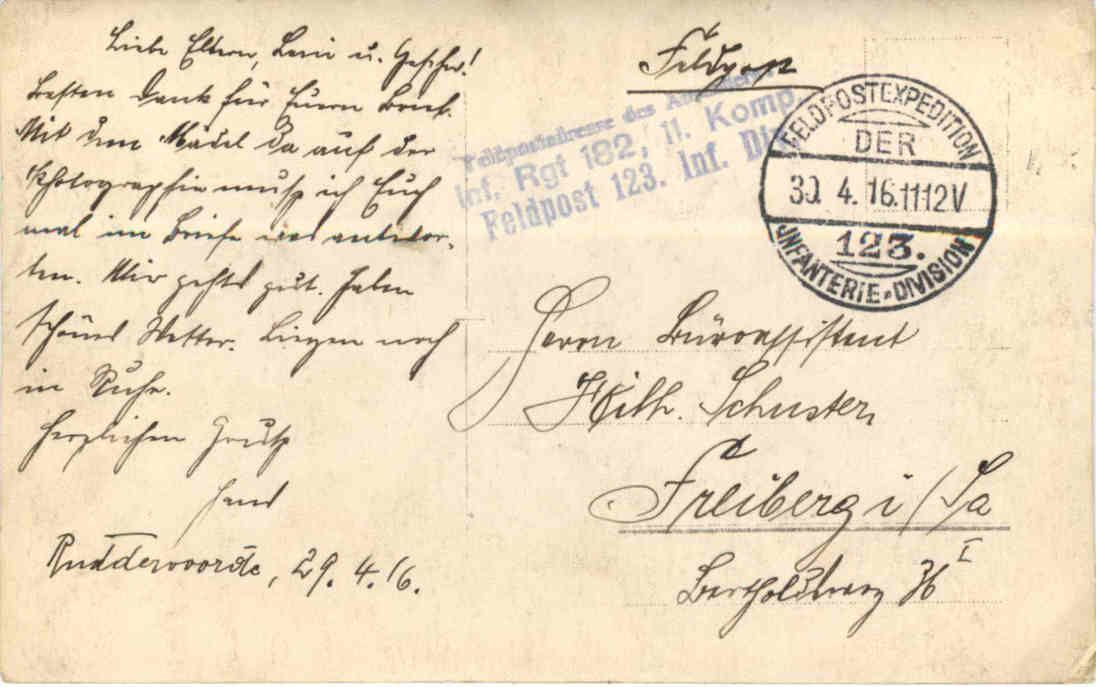 Liebe Eltern, Leni u. Geschw!
Besten Dank für Euern Brief.
Mit dem Mädel da auf der
Photographie muß ich Euch
mal im Briefe was antwor-
ten. Mir gehts gut. Haben
schönes Wetter. Liegen noch
in Ruhe.
Herzlichen Gruß
Hans
Ruddervoorde, 29. 4. 16.
Feldpost
Feldpostadresse des
Inf. Rgt 182, 11. Komp.
Feldpost 123. Inf. Div.
FELDPOSTEXPEDITION
DER
30. 4. 16. 11-12 V
123.
INFANTERIE-DIVISION
Herrn Büroassistent
Wilh. Schuster
Freiberg i/Sa